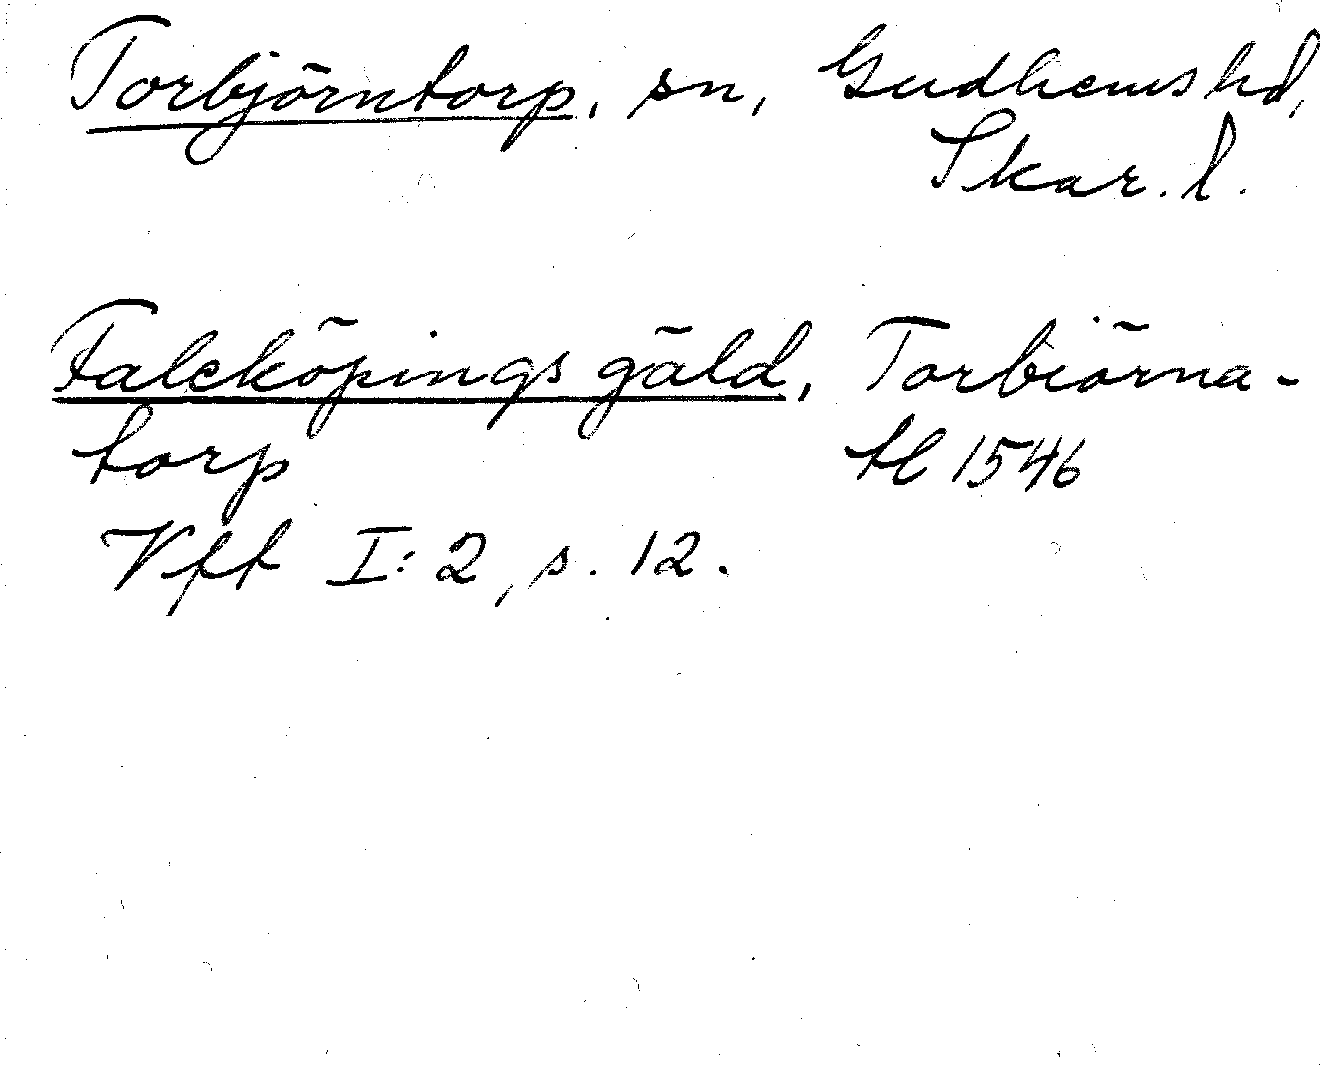 Torbjörntorp, sn, Gudhems hd,
Skar. l.
Falcköpings gäld, Torbiörna-
torp tl 1546
Vft I:2, s. 12.